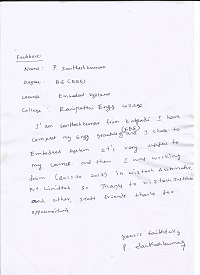 Feedback:
Name : P. Santhoshkumar
Degree : BE (EEE)
Course : Embedded Systems
College : Ranipettai Engg college
I am santhoshkumar from Katpadi I have
complet my Engg graduation (EEE) and I chose to
Embedded System It's very useful to
my career and then I was working
from (2011 to 2012) in wiztech Automation
Pvt. Limited. So Thanks to wiztech Institute
and other staff friends thanks for
opportunitys
yours faithfully
P. Santhoshkumar